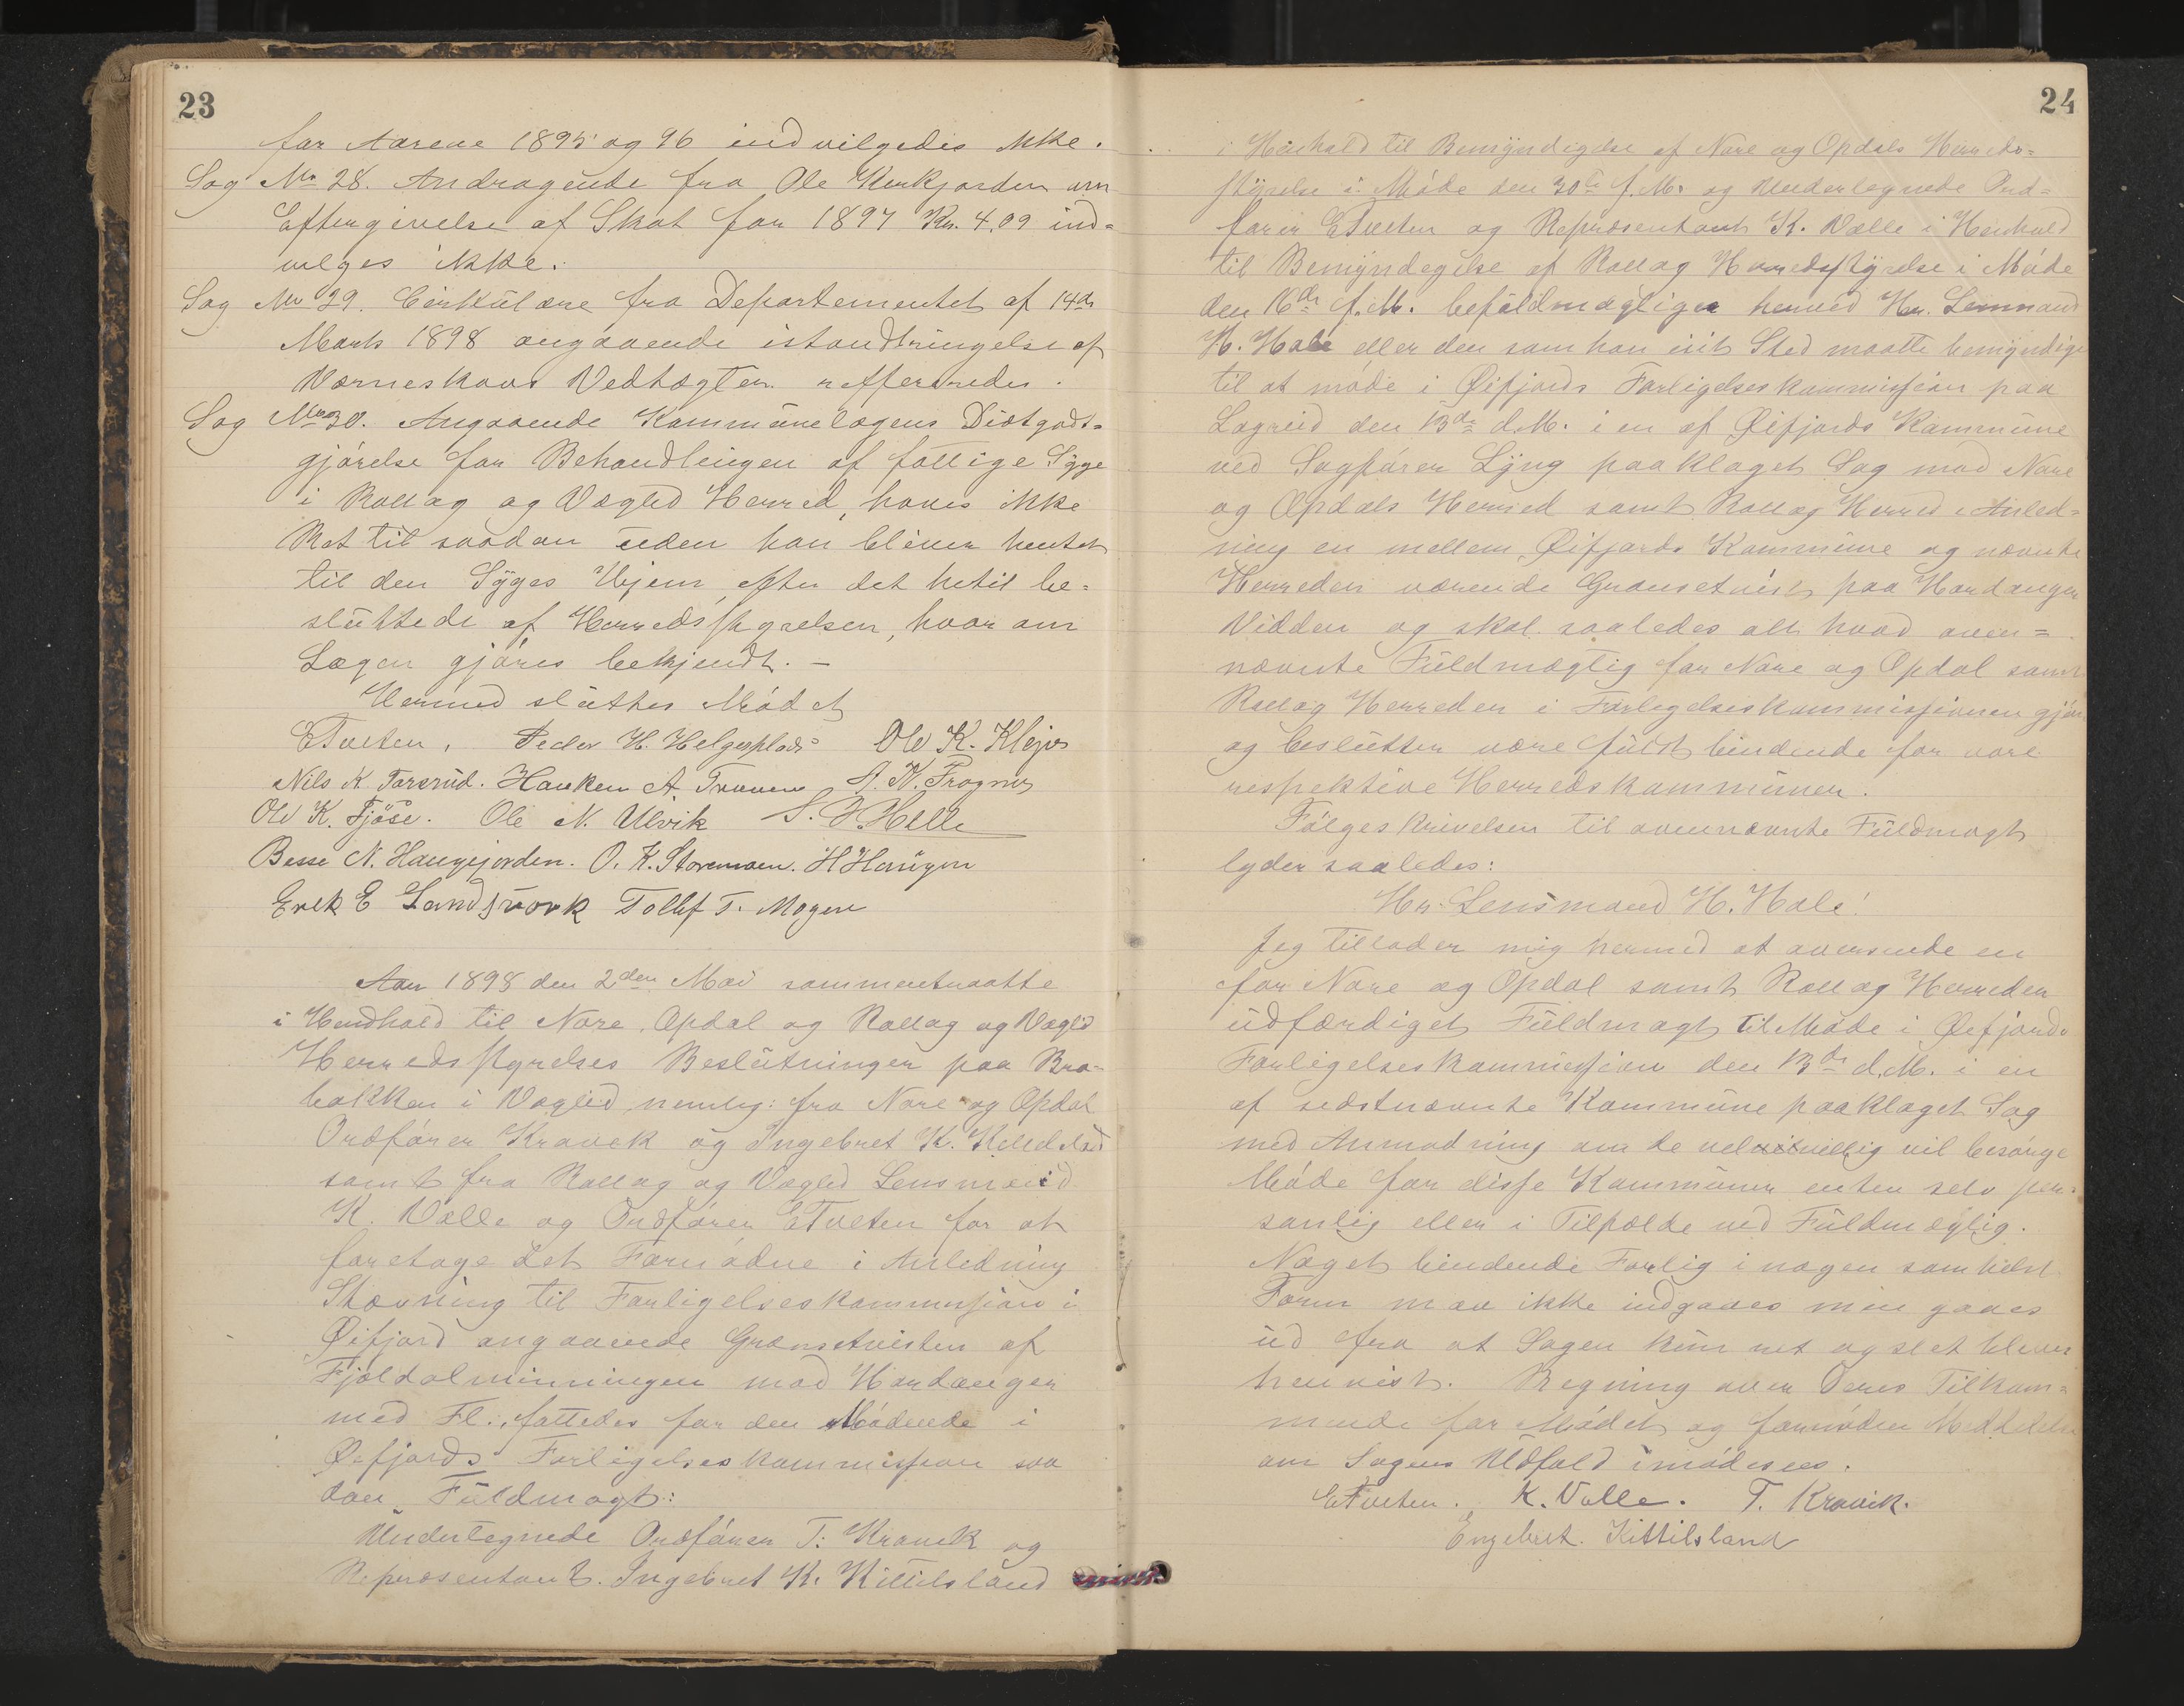 23
for Aarene 1895 og 96 indvilgedes ikke.
Sag No 28. Andragende fra Ole Kirkjorden om
Eftergivelse af Skat for 1897 Kr. 4.09 ind=
vilges ikke.
Sag No 29. Cirkulære fra Departementet af 14de
Marts 1898 angaaende istandbringelse af
Værneskovs Vedtægter refferertedes.
Sag No 30. Angaaende Kommunelægens Diætgodt=
gjørelse for Behandlingen af fattige Syge
i Rollag og Vægled Herred, haves ikke
Ret til saadan uden han bliver hentet
til den Syges Hjem, efter det hertil be=
sluttede af Herredsstyrelsen, hvor om
Lægen gjøres bekjendt. –
Hermed sluttes Mødet
ETveten. Peder H. Helgesplads Ole K. Klejvs
Nils K Torsrud. Haaken A Traaen A. N. Frogner
Ole K. Fjøse. Ole N. Ulvik S. H. Helle
Besse N. Haugejorden. O. K. Stormoen. H Haugen
Erek E Landsværk Tollef T. Mogen
Aar 1898 den 2den Mai sammentraatte
i Hendhold til Nore, Opdal og Rollag og Veglid
Herredsstyrelses Beslutninger paa Bro=
bakken i Veglid, nemlig: fra Nore og Opdal
Ordfører Kravik og Ingebret K. Kittilsland
samt fra Rollag og Vegled Lensmand
K. Valle og Ordfører ETveten for at
foretage det Fornødne i Anledning
Stævning til Forligelseskommission i
Øifjord angaaende Grænsetvisten af
Fjeldalminningen mod Hardanger
med Fl., fattedes for den Mødende i
Øifjords Forligelseskommission saa
dan Fuldmagt:
Undertegnede Ordfører T. Kravik og
Repræsentant Ingebret K. Kittilsland
24
i Henhold til Bemyndigelse af Nore og Opdals Herreds=
styrelse i Møde den 30te f.M. og Undertegnede Ord=
fører ETveten og Repræsentant K. Valle i Henhold
til Bemyndegelse af Rollag Herredsstyrelse i Møde
den 16de f.M. befuldmægtiger herved Hr. Lensmand
H. Hale eller den som han i sit Sted maatte bemyndige
til at møde i Øifjords Forligelseskommission paa
Lægreid den 13de d.M. i en af Øifjords Kommune
ved Sagfører Lyng paaklaget Sag mod Nore
og Opdals Herred samt Rollag Herred i Anled=
ning en mellem Øifjords Kommune og nævnte
Herreder værende Grænsetvist paa Hardanger
Vidden og skal saaledes alt hvad oven=
nævnte Fuldmægtig for Nore og Opdal samt
Rollag Herreder i Forlegelseskommissionen gjør
og beslutter være fuldt bindende for vore
respektive Herredskommuner.
Følgeskrivelsen til ovennævnte Fuldmagt
lyder saaledes:
Hr. Lensmand H. Hale!
Jeg tillader mig hermed at oversende en
for Nore og Opdal samt Rollag Herreder
udfærdiget Fuldmagt til Møde i Øifjords
Forligelseskommission den 13de d.M. i en
af sidstnævnte Kommune paaklaget Sag
med Anmodning om De velvillig vil besørge
Møde for disse Kommuner enten selv per=
sonlig eller i Tilfælde ved Fuldmægtig.
Noget bindende Forlig i nogen somhelst
Form maa ikke indgaaes men gaaes
ud fra at Sagen kun ret og slet bliver
henvist. Regning over Deres Tilkom=
mende for Mødet og fornøden Meddelelse
om Sagens Udfald imødesees.
ETveten. K. Valle. T. Kravik.
Engebret Kittilsland